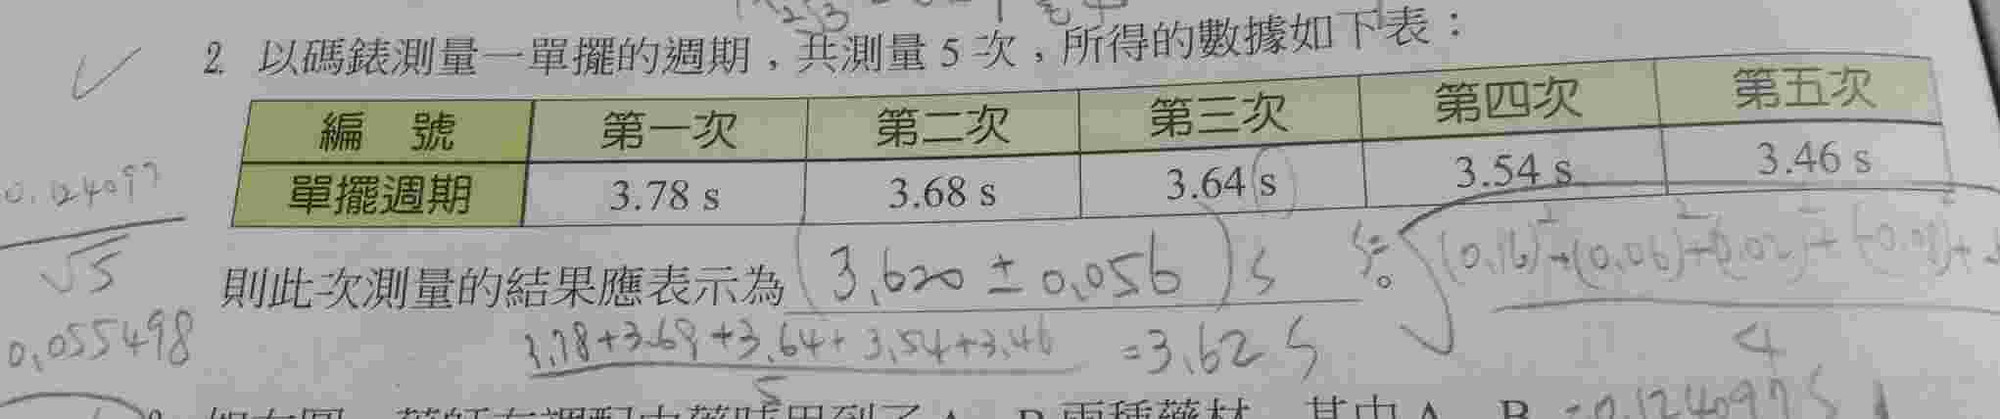 2. 以碼錶測量一單擺的週期，共測量 5 次，所得的數據如下表：
編 號 第一次 第二次 第三次 第四次 第五次
單擺週期 3.78 s 3.68 s 3.64 s 3.54 s 3.46 s
0.124097
√5
則此次測量的結果應表示為 (3.620 ± 0.056) s
S= √ (0.16)²+(0.06)²+(0.02)²+(-0.08)²+
4
0.055498
3.78+3.68+3.64+3.54+3.46
5
=3.62 s
A、B 兩種藥材，其中 A、B
=0.124097 s